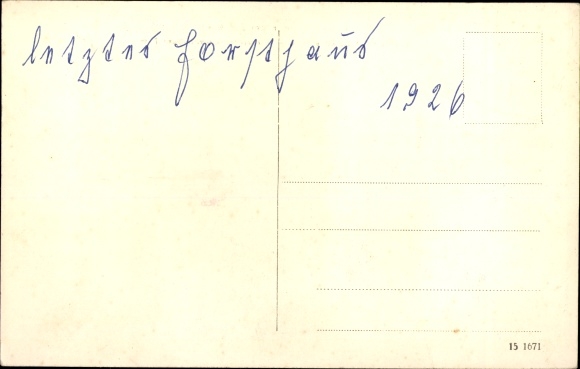 letztes Forsthaus
1926
15 1671